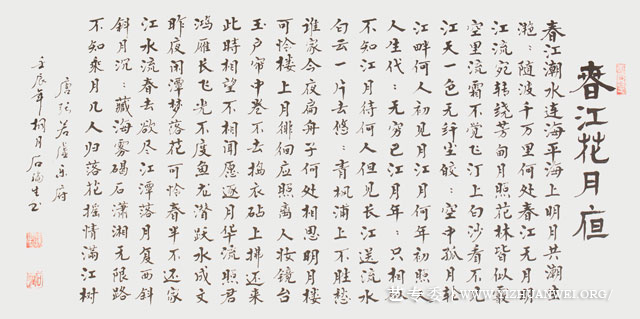 春江花月夜
春江潮水连海平海上明月共潮生
滟:随波千万里何处春江无月明
江流宛转绕芳甸月照花林皆似霰
空里流霜不觉飞汀上白沙看不见
江天一色无纤尘皎:空中孤月轮
江畔何人初见月江月何年初照人
人生代:无穷已江月年:只相似
不知江月待何人但见长江送流水
白云一片去悠:青枫浦上不胜愁
谁家今夜扁舟子何处相思明月楼
可怜楼上月徘徊应照离人妆镜台
玉户帘中卷不去捣衣砧上拂还来
此時相望不相闻愿逐月华流照君
鸿雁长飞光不度鱼龙潜跃水成文
昨夜闲潭梦落花可怜春半不还家
江水流春去欲尽江潭落月复西斜
斜月沉:藏海雾碣石潇湘无限路
不知乘月几人归落花摇情满江树
唐张若虚乐府
壬辰年桐月石福生书